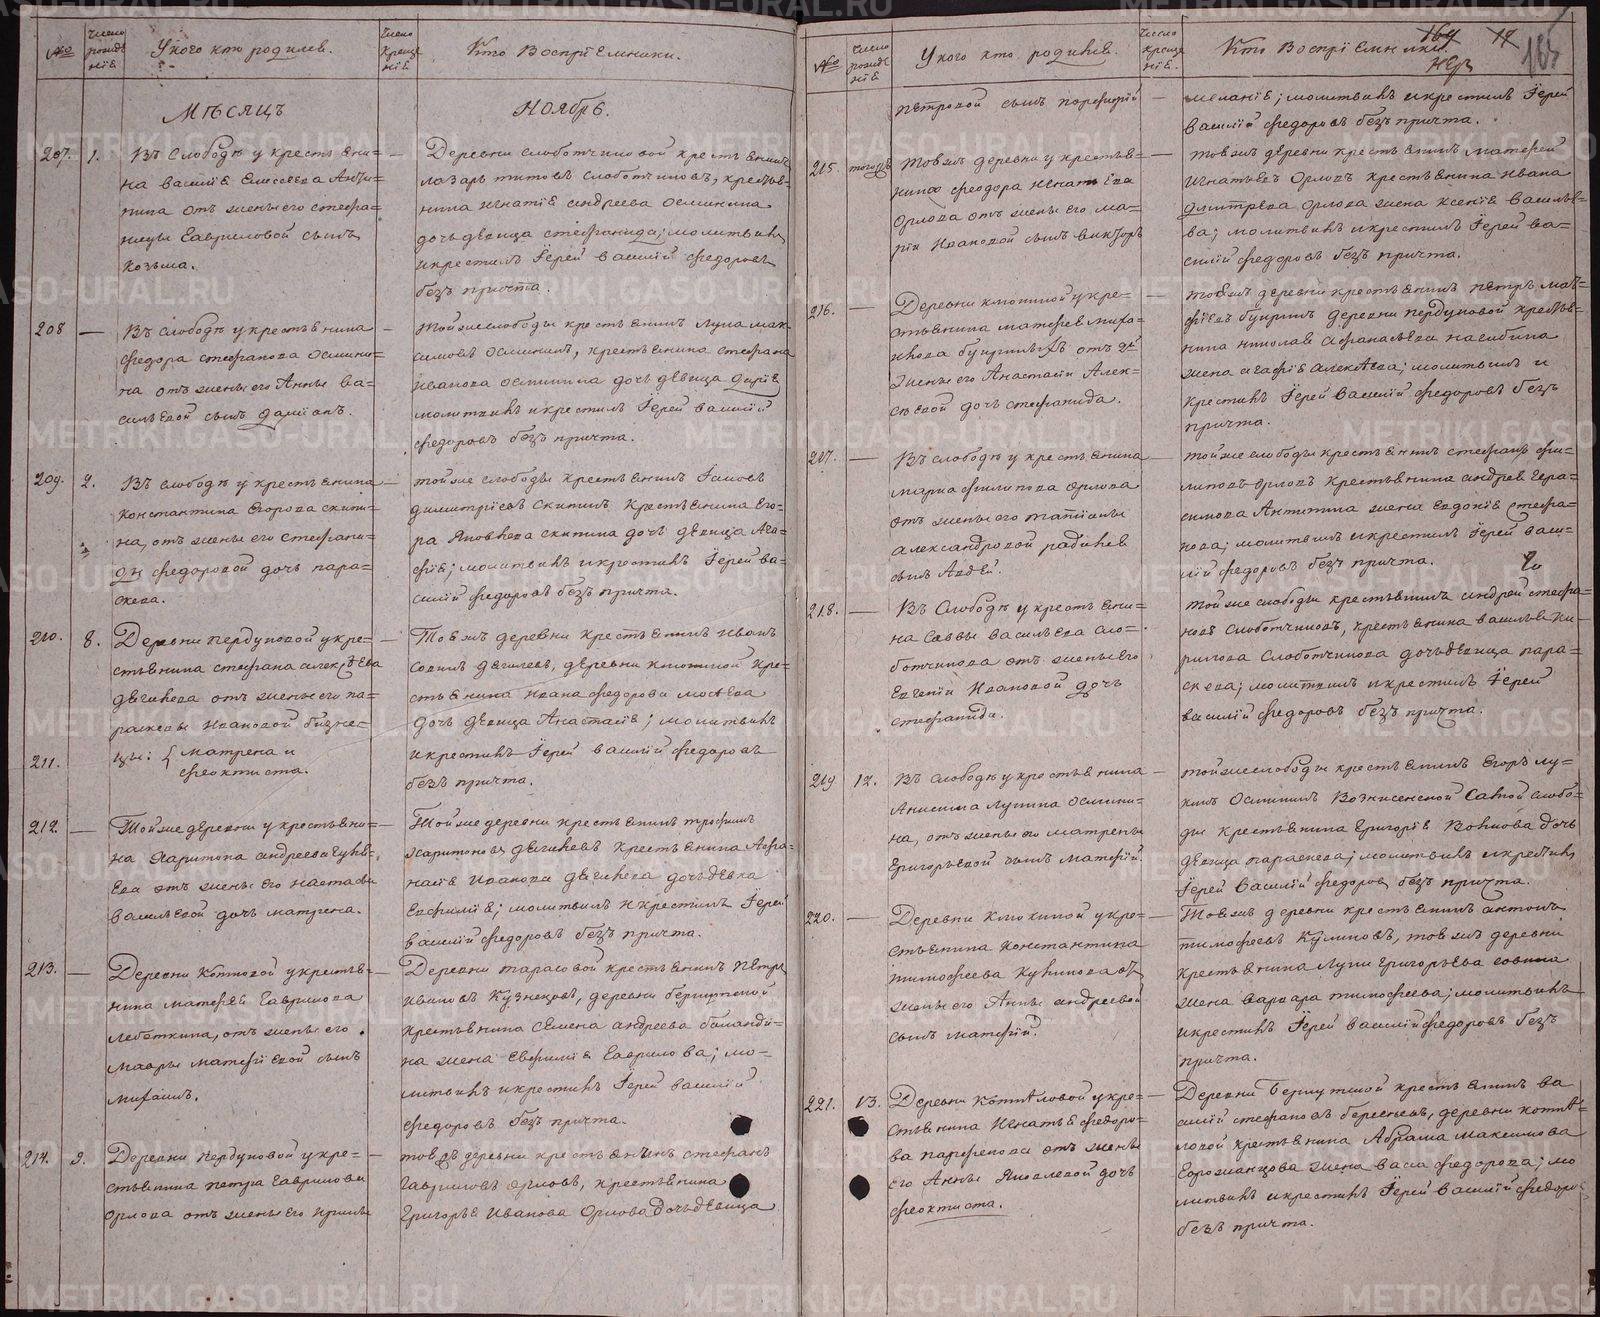 №
Число рождѣнїѣ
У кого кто родился.
Число крещенїѣ
Кто Воспрїемники.
Мѣсяцъ
Ноябрь.
207.
1.
Въ слободѣ у крестьяни=
на василїя Елисѣева Анти=
пина отъ жены его стефа=
ниды Гавриловой сынъ
козьма.
Деревни слоботчиковой крестьянинъ
лазарь титовъ слоботчиковъ, крестья=
нина игнатїя андреева осминина
дочь дѣвица стефанида; молитвилъ
и крестилъ Їерей василїй федоровъ
безъ причта.
208
—
Въ слободѣ у крестьянина
федора стефанова осмини=
на отъ жены его Анны ва=
сильевой сынъ дамїанъ.
Той же слободы крестьянинъ лука мак
симовъ осмининъ, крестьянина стефана
иванова осминина дочь дѣвица дарїя
молитвилъ и крестилъ Їерей василїй
федоровъ безъ причта.
209.
2.
Въ слободѣ у крестьянина
константина Егорова скипи=
на, отъ жены его стефани=
ды федоровой дочь пара=
скева.
той же слободы крестьянинъ Їаковъ
димитрїевъ скипинъ крестьянина Его=
ра Яковлева скипина дочь дѣвица Ага=
фїя; молитвилъ и крестилъ Їерей ва=
силїй федоровъ безъ причта.
210.
8.
Деревни пердуновой у кре=
стьянина стефана алексѣева
дѣгилева отъ жены его па=
раскевы Ивановой близне=
211.
цы: { матрена и
феоктиста.
Тоя жъ деревни крестьянинъ иванъ
дѣгилевъ, деревни клюкиной кре=
стьянина ивана федорова
дочь дѣвица Анастасїя; молитвилъ
и крестилъ Їерей василїй федоровъ
безъ причта.
212.
—
Той же деревни у крестьяни=
на Харитона андреева
отъ жены его настасьи
васильевой дочь матрена.
Той же деревни крестьянинъ трофимъ
харитоновъ дѣгилевъ крестьянина Афа=
насїя иванова дѣгилева дочь дѣвка
Евфимїя; молитвилъ и крестилъ Їерей
василїй федоровъ безъ причта.
213.
—
Деревни коптѣловой у крестья=
нина матфея Гаврилова
лебѣткина, отъ жены его
мавры матфїевой сынъ
михаилъ.
Деревни тарасовой крестьянинъ петръ
ивановъ кузнецовъ, деревни бериутской
крестьянина семена андреева баланди=
на жена Евфимїя Гаврилова; мо=
литвилъ и крестилъ Їерей василїй
федоровъ безъ причта.
214.
9.
Деревни пердуновой у кре=
стьянина петра Гаврилова
орлова отъ жены его ирины
Тоя жъ деревни крестьянинъ стефанъ
Гавриловъ орловъ, крестьянина
Григорья Иванова Орлова дочь дѣвица
№
число рождѣнїѣ
У кого кто родился.
Число крещенїѣ
Кто Воспрїемники.
164
165
петровой сынъ порфирїй
меланїя; молитвилъ и крестилъ Їерей
василїй федоровъ безъ причта.
215.
тогожъ
Тоя жъ деревни у крестья=
нина федора игнатьева
Орлова отъ жены его ма=
рїи Ивановой сынъ викторъ
тоя жъ деревни крестьянинъ матфей
игнатьевъ Орловъ крестьянина ивана
дмитрева Орлова жена ксенїя василье=
ва; молитвилъ и крестилъ Їерей ва=
силїй федоровъ безъ причта.
216.
—
Деревни клюкиной у кре=
стьянина матфея
отъ
жены его Анастасїи Алек=
сѣевой дочь стефанида.
тоя жъ деревни крестьянинъ петръ мат=
фїевъ деревни пердуновой крестья=
нина николая афанасьева
жена агафїя алексѣева; молитвилъ и
крестилъ Їерей василїй федоровъ безъ
причта.
217.
—
Въ слободѣ у крестьянина
марка филипова орлова
отъ жены его татїаны
александровой родился
сынъ Авдей.
той же слободы крестьянинъ стефанъ фи=
липовъ орловъ крестьянина андрея Гера=
симова Антипина жена Евдокїя стефа=
нова; молитвилъ и крестилъ Їерей васи=
лїй федоровъ безъ причта.
218.
—
Въ слободѣ у крестьяни=
на саввы васильева сло=
ботчикова отъ жены его
Евгенїи Ивановой дочь
стефанида.
той же слободы крестьянинъ андрей стефа=
новъ слоботчиковъ, крестьянина василья ки=
рилова слоботчикова дочь дѣвица пара=
скева; молитвилъ и крестилъ Їерей
василїй федоровъ безъ причта.
219
12.
Въ слободѣ у крестьянина
Анисима лукина осмини=
на, отъ жены его матрены
Григорьевой сынъ матфїй.
той же слободы крестьянинъ Егоръ лу=
кинъ осмининъ слобо=
ды крестьянина Григорїя дочь
дѣвица параскева; молитвилъ и крестилъ
Їерей василїй федоровъ безъ причта.
220.
—
Деревни клюкиной у кре=
стьянина константина
тимофеева куликова отъ
жены его Анны андреевой
сынъ матфїй.
Тоя жъ деревни крестьянинъ антонъ
тимофеевъ куликовъ, тоя жъ деревни
крестьянина луки григорьева
жена варвара тимофеева; молитвилъ
и крестилъ Їерей василїй федоровъ безъ
причта.
221.
13.
Деревни коптѣловой у кре=
стьянина Игнатья федоро=
ва парфенова отъ жены
его Анны Яковлевой дочь
феоктиста.
Деревни бериутской крестьянинъ ва
силїй стефановъ деревни коптѣ=
ловой крестьянина Абрама максимова
жена васа федорова; мо
литвилъ и крестилъ Їерей василїй федоро
безъ причта.